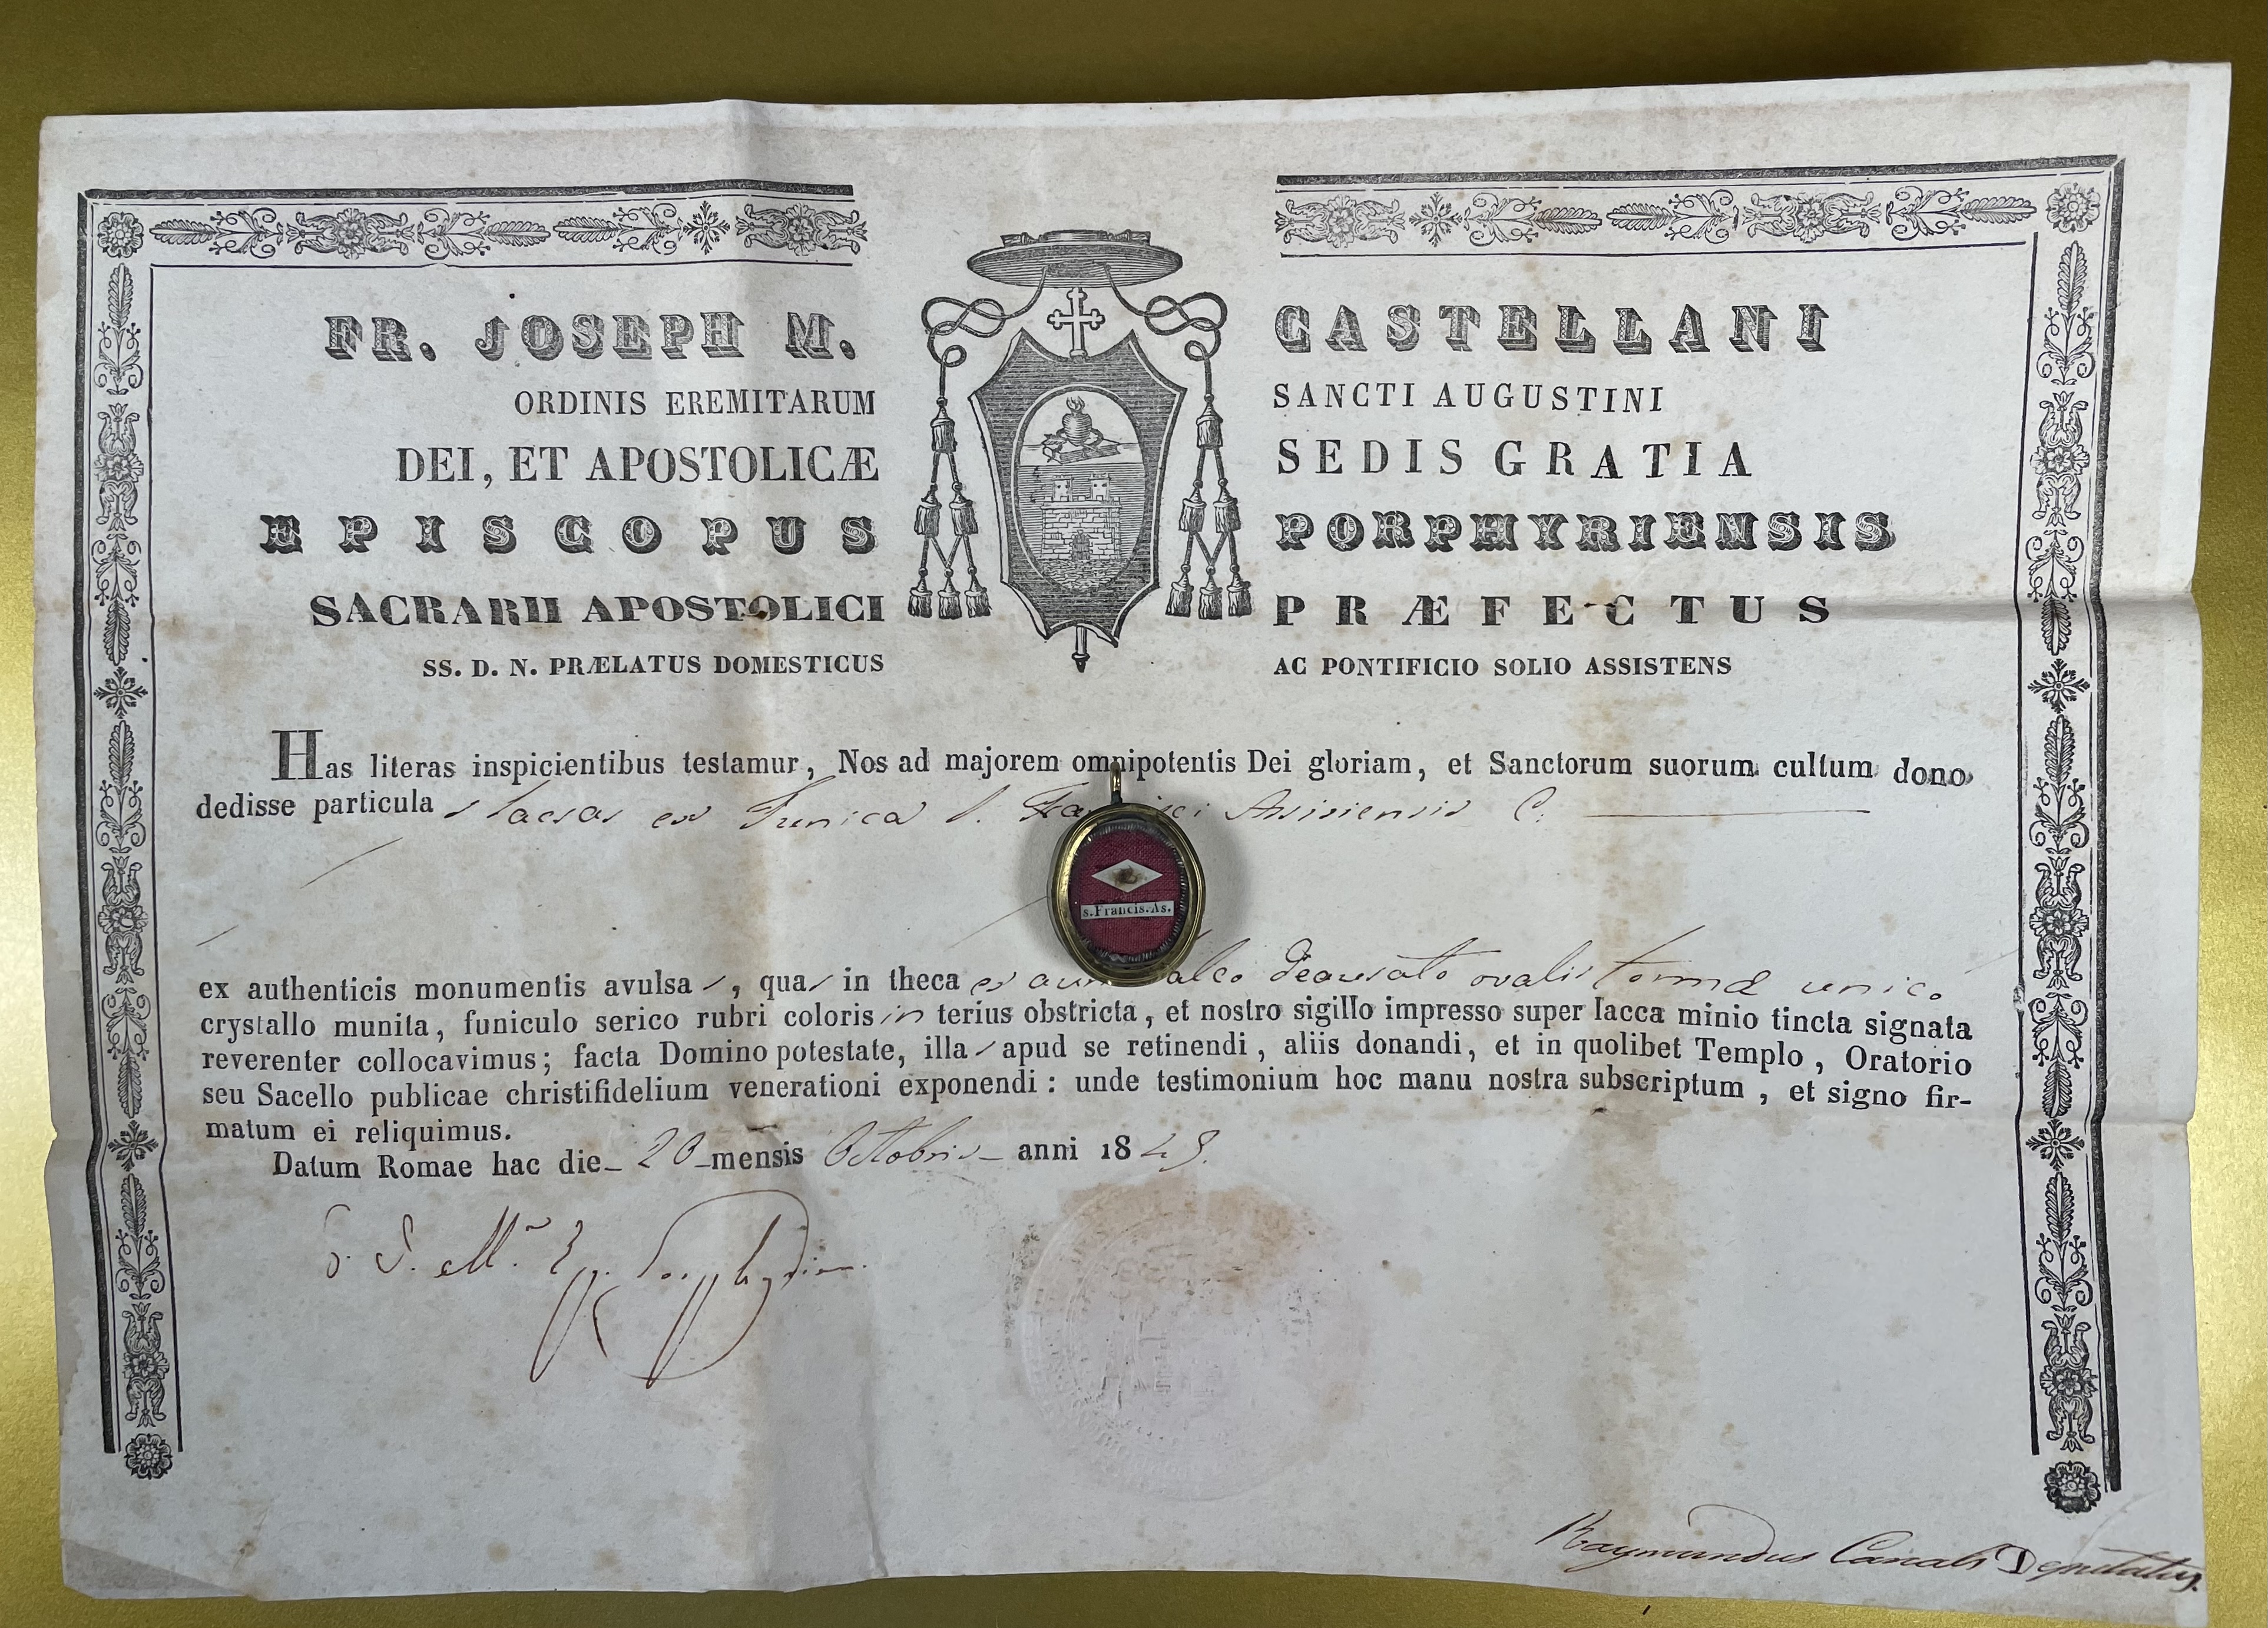 FR. JOSEPH M. CASTELLANI
ORDINIS EREMITARUM SANCTI AUGUSTINI
DEI, ET APOSTOLICÆ SEDIS GRATIA
EPISCOPUS PORPHYRIENSIS
SACRARII APOSTOLICI PRÆFECTUS
SS. D. N. PRÆLATUS DOMESTICUS AC PONTIFICIO SOLIO ASSISTENS
Has literas inspicientibus testamur, Nos ad majorem omnipotentis Dei gloriam, et Sanctorum suorum cultum dono
dedisse particulas sacras ex Tunica S. Assisiensis C.
s. Francis. As.
ex authenticis monumentis avulsas, quas in theca ex deaurato ovalis formæ unico
crystallo munita, funiculo serico rubri coloris in terius obstricta, et nostro sigillo impresso super lacca minio tincta signata
reverenter collocavimus; facta Domino potestate, illas apud se retinendi, aliis donandi, et in quolibet Templo, Oratorio
seu Sacello publicae christifidelium venerationi exponendi: unde testimonium hoc manu nostra subscriptum, et signo fir-
matum ei reliquimus.
Datum Romae hac die 20 mensis Octobris anni 1849.
F. J. M. Ep. Porphyrien.
Raymundus Canali Deputatus.